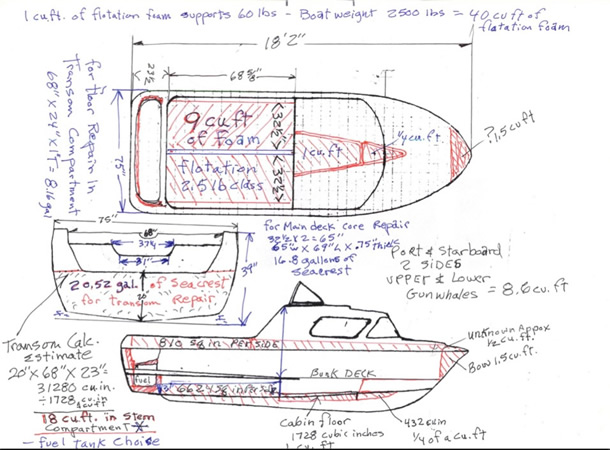 1 cu.ft. of flotation foam supports 60 lbs - Boat weight 2500 lbs = 40 cu ft of
flotation foam
18'2"
23½
68
for Floor Repair In
Transom Compartment
68"X 24"X 1"T = 8.16 gal
75"
9 cu ft
of foam
flotation
2.5 lb class
<32½>
<32½>
1 cu.ft.
¼ cu.ft.
?1.5 cu ft
75"
68"
37¼
31"
39"
20
20.52 gal. of Seacrest
for transom Repair
for Main deck core Repair
32½ X 2 = 65"
65"W X 69"L X .75" thick
16.8 gallons of
seacrest
Port & Starboard
2 SIDES
UPPER & Lower
Gunwhales = 8.6 cu. ft
Transom Calc.
Estimate
20"X 68"X 23"½
31280 cu.in.
÷1728 cu.in
cuft
18 cu ft. in Stern
Compartment
- fuel tank Choice
810 sq in PER SIDE
fuel
662
Bunk DECK
Unknown Approx
½ cu.ft.
Bow 1.5 cu.ft.
Cabin floor
1728 cubic inches
1 cu.ft
432 cu in
¼ of a cu.ft